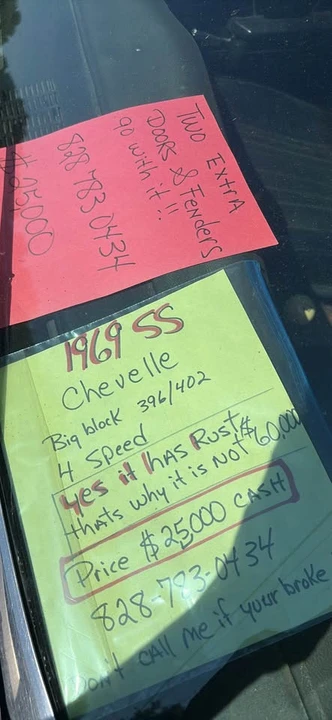 TWO EXTRA
DOORS & Fenders
go with it !!
828 783 0434
$25000
1969 SS
Chevelle
Big block 396/402
4 Speed
yes it has Rust
thats why it is not $60,000
Price $25,000 CASH
828-783-0434
Don't CALL me if your broke